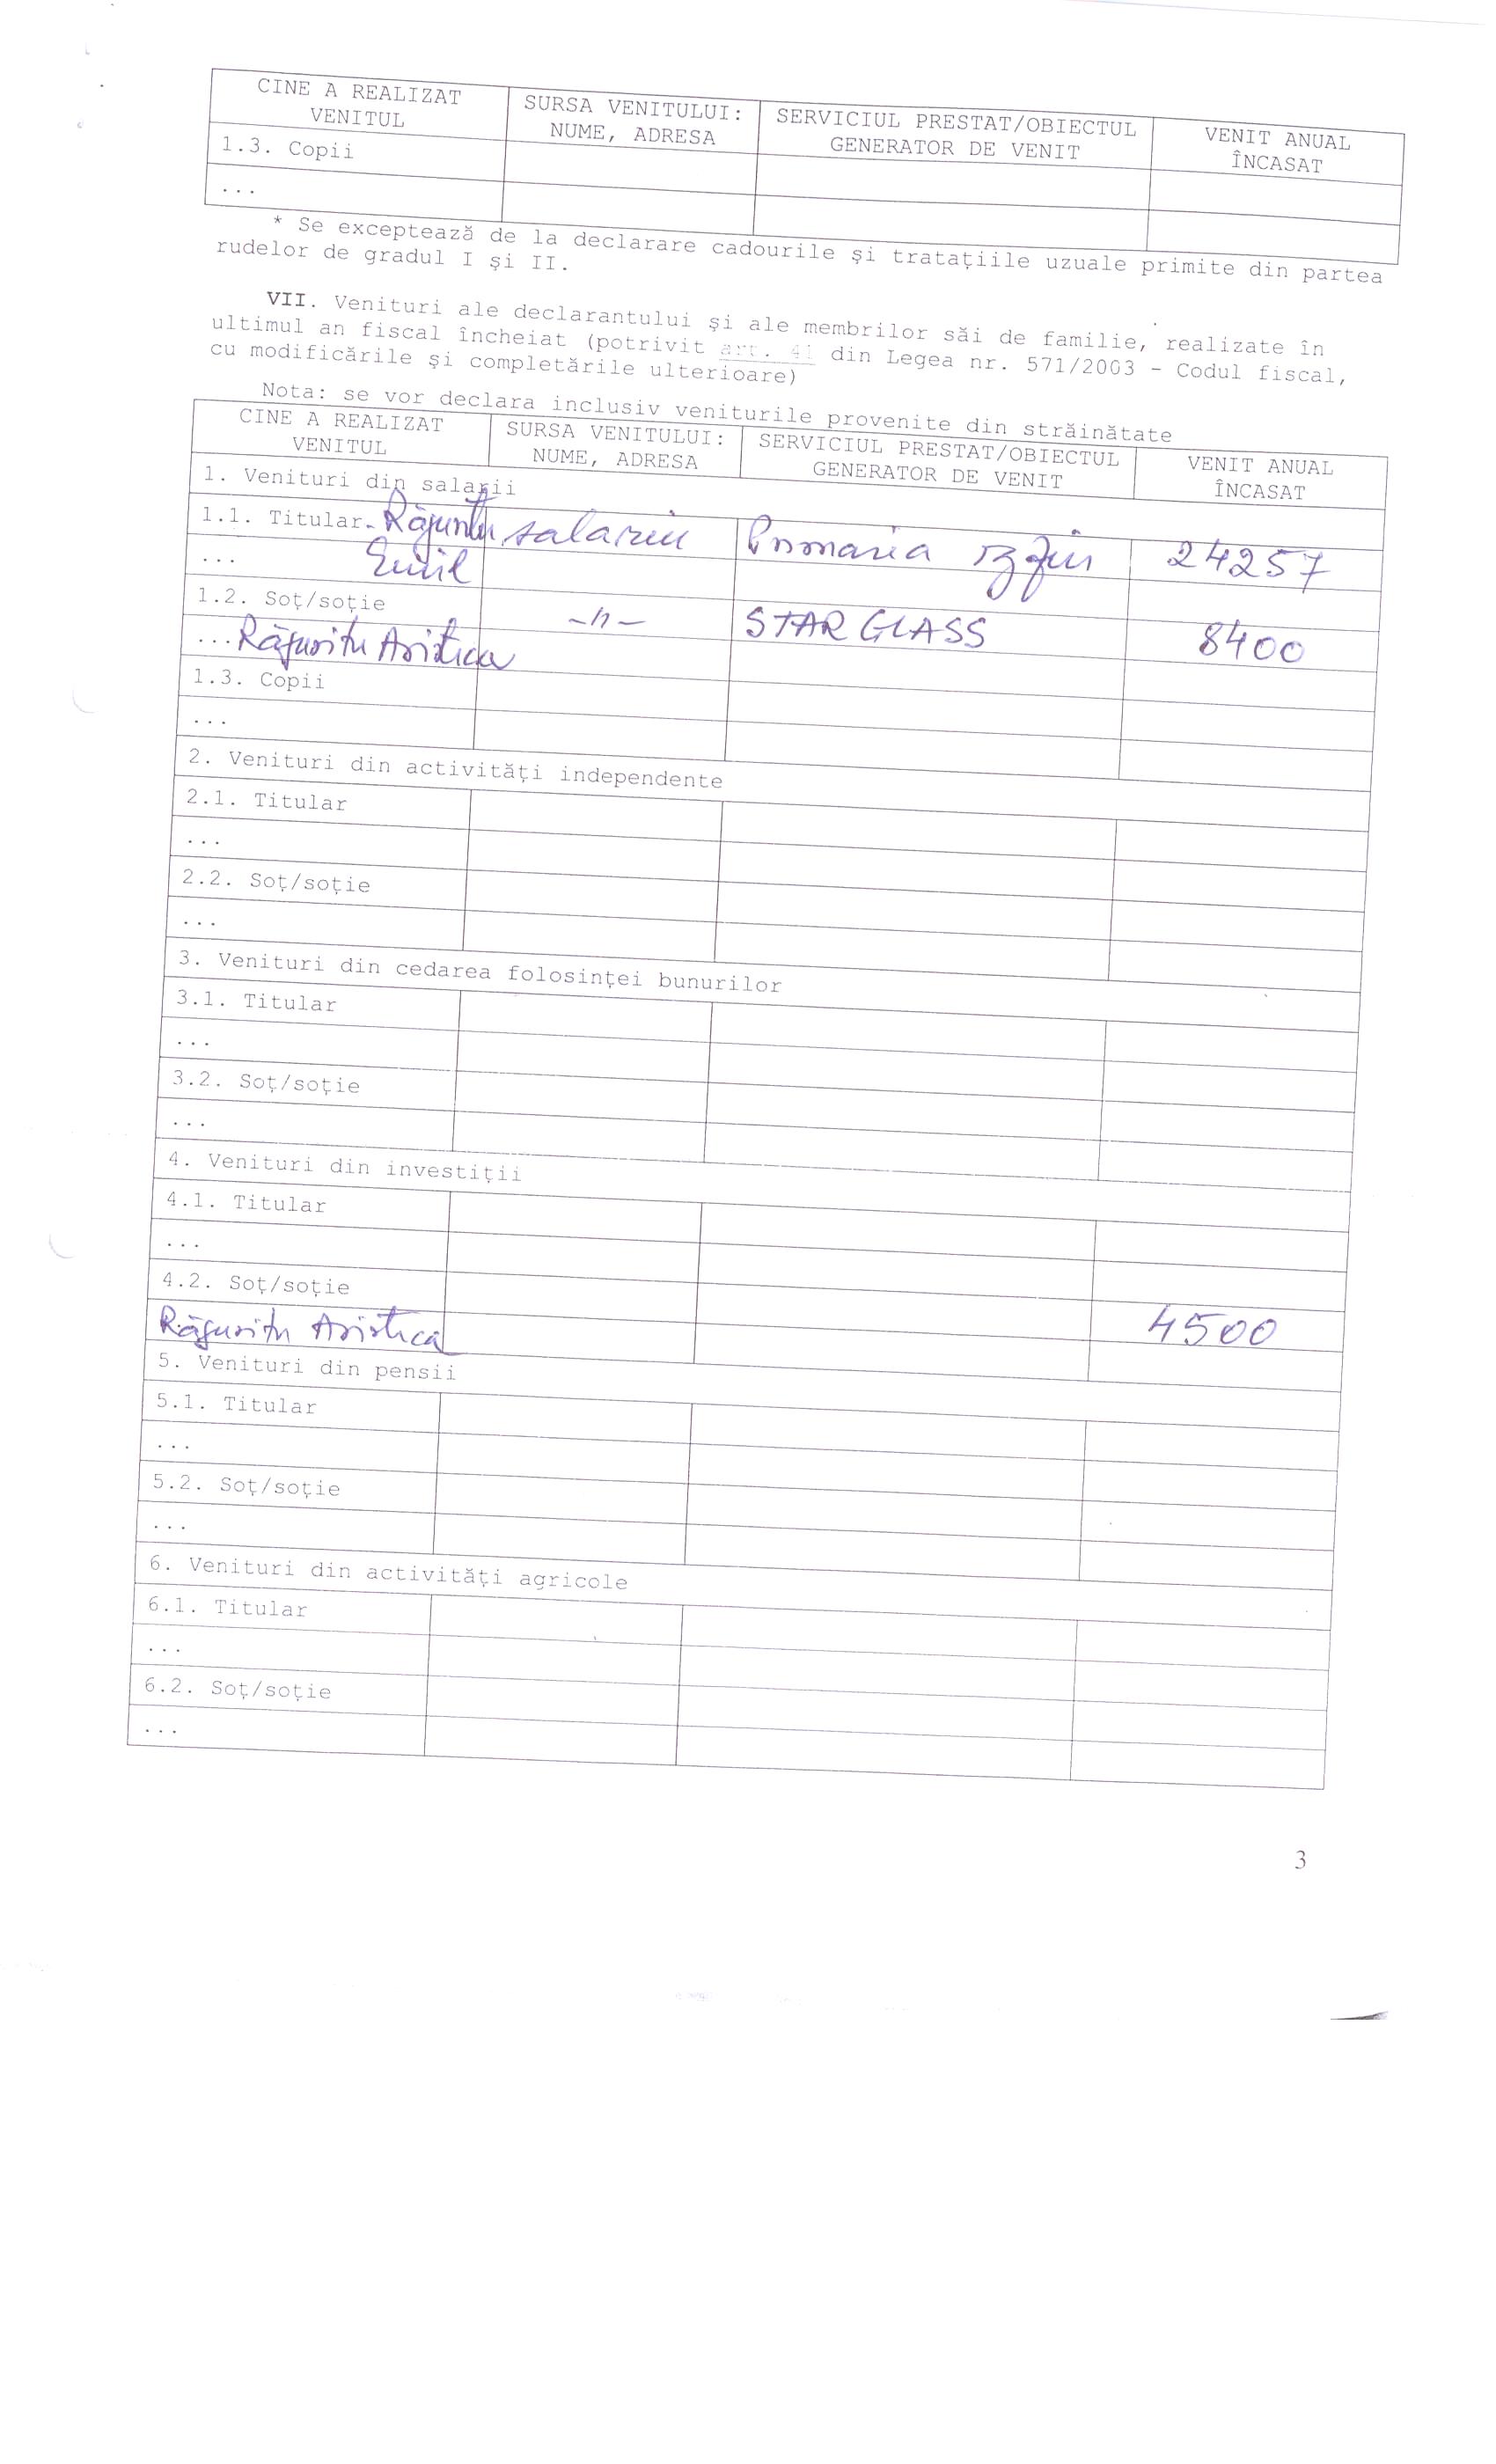 CINE A REALIZAT VENITUL SURSA VENITULUI: NUME, ADRESA SERVICIUL PRESTAT/OBIECTUL GENERATOR DE VENIT VENIT ANUAL ÎNCASAT
1.3. Copii
...
* Se exceptează de la declarare cadourile şi trataţiile uzuale primite din partea
rudelor de gradul I şi II.
VII. Venituri ale declarantului şi ale membrilor săi de familie, realizate în
ultimul an fiscal încheiat (potrivit art. 41 din Legea nr. 571/2003 - Codul fiscal,
cu modificările şi completările ulterioare)
Nota: se vor declara inclusiv veniturile provenite din străinătate
CINE A REALIZAT VENITUL SURSA VENITULUI: NUME, ADRESA SERVICIUL PRESTAT/OBIECTUL GENERATOR DE VENIT VENIT ANUAL ÎNCASAT
1. Venituri din salarii
1.1. Titular salariu Primaria 24257
... Emil
1.2. Soţ/soţie -"- STAR GLASS 8400
... Răguritu Aristica
1.3. Copii
...
2. Venituri din activităţi independente
2.1. Titular
...
2.2. Soţ/soţie
...
3. Venituri din cedarea folosinţei bunurilor
3.1. Titular
...
3.2. Soţ/soţie
...
4. Venituri din investiţii
4.1. Titular
...
4.2. Soţ/soţie
Răguritu Aristica 4500
5. Venituri din pensii
5.1. Titular
...
5.2. Soţ/soţie
...
6. Venituri din activităţi agricole
6.1. Titular
...
6.2. Soţ/soţie
...
3